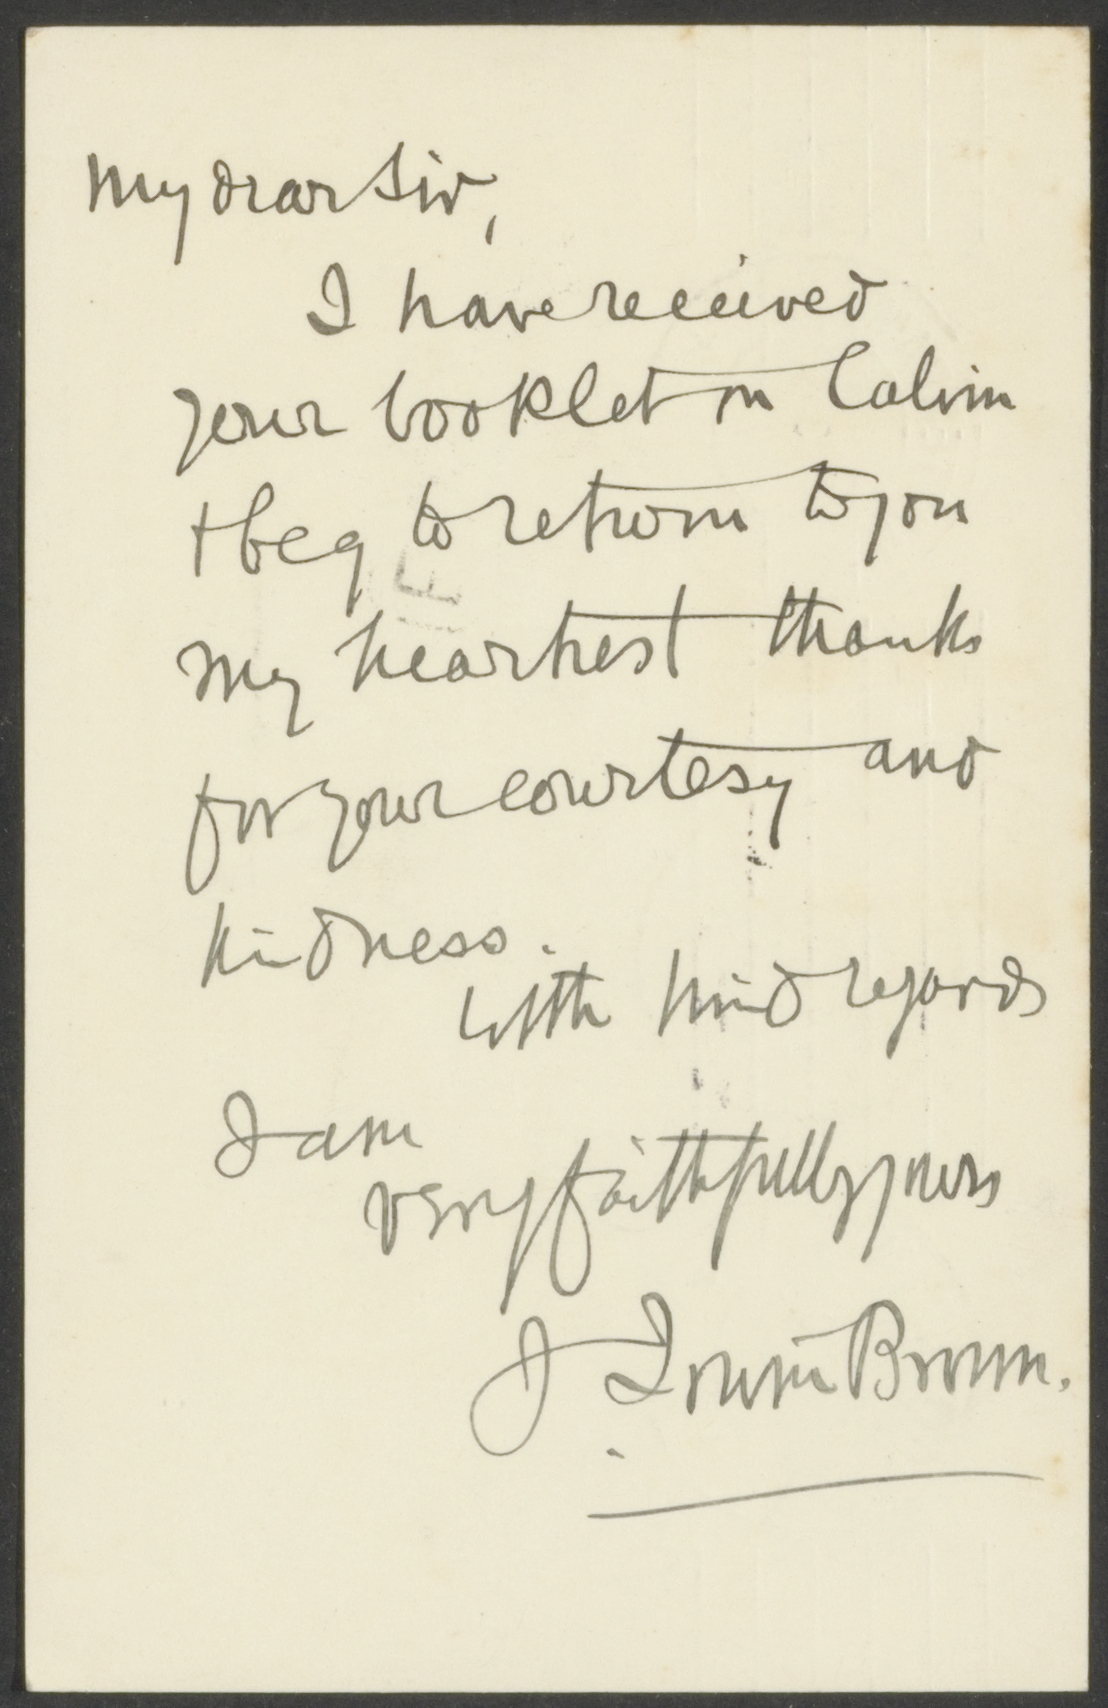 My dear Sir,
I have received
your booklet on Calvin
+ beg to return to you
my heartiest thanks
for your courtesy and
kindness.
With kind regards
I am
very faithfully yours
J Irwin Brown.